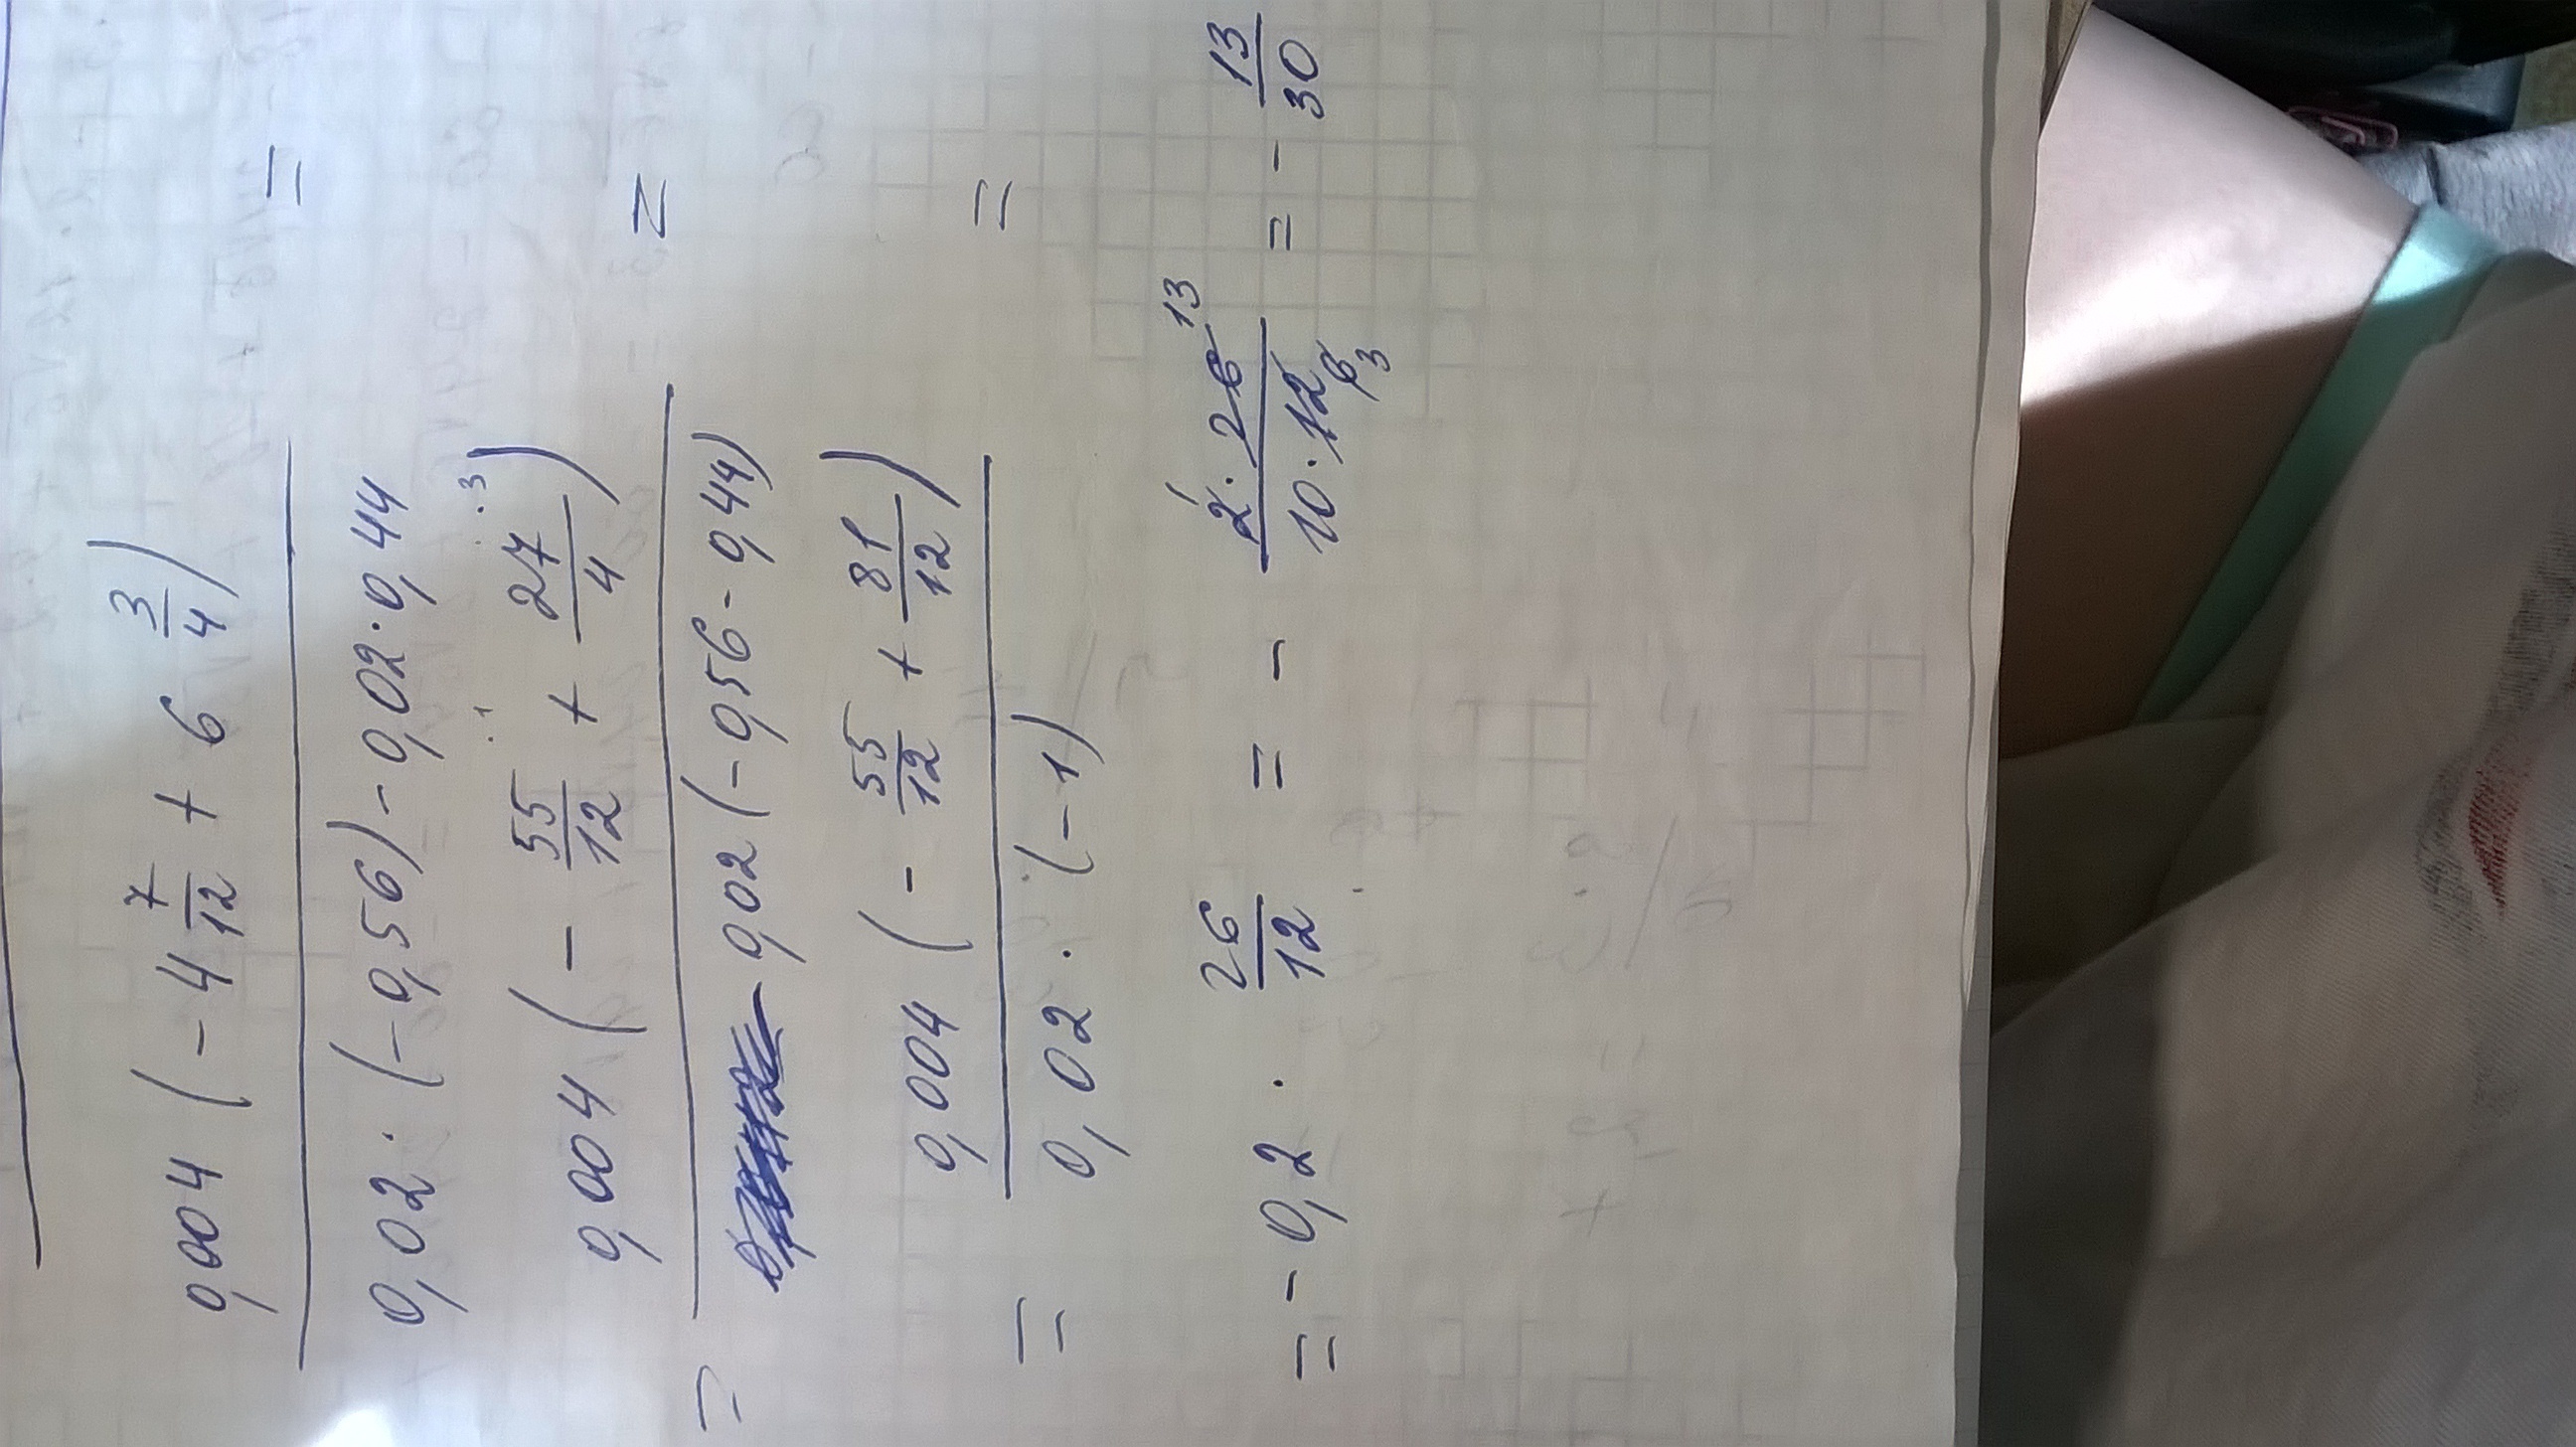 0,004 (- 4 7/12 + 6 3/4) =
0,02 · (-0,56) - 0,02 · 0,44
0,004 (- 55/12 + 27/4 · 3) =
= 0,02 (-0,56 - 0,44)
0,004 (- 55/12 + 81/12) =
= 0,02 · (-1)
= - 0,2 · 26/12 = - 2 1 · 26 13 / 10 · 12 6 3 = - 13/30